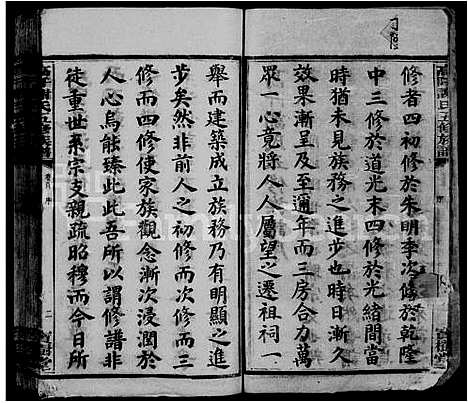 修者四初修於朱明季次修於乾隆
中三修於道光末四修於光緒間當
時猶未見族務之進步也時日漸久
效果漸呈及至通年而三房合力萬
眾一心竟將人人屬望之遷祠一
舉而建築成立族務乃有明顯之進
步矣然非前人之初修而再而三
修而四修使家族觀念漸次浸潤於
人心烏能臻此此吾所以謂修譜非
徒重世系宗支親疏昭穆而今日所